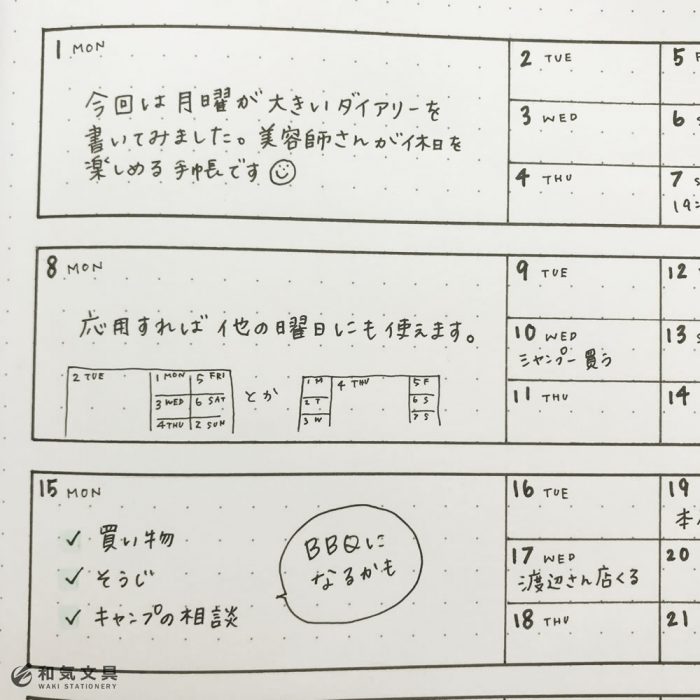 1 MON
今回は月曜が大きいダイアリーを
書いてみました。美容師さんが休日を
楽しめる手帳です
2 TUE
3 WED
4 THU
5 F
6 S
7 S
8 MON
応用すれば他の曜日にも使えます。
2 TUE
1 MON
5 FRI
3 WED
6 SAT
4 THU
2 SUN
とか
1 M
2 T
3 W
4 THU
5 F
6 S
7 S
9 TUE
10 WED
シャンプー買う
11 THU
12
13 S
14
15 MON
✓ 買い物
✓ そうじ
✓ キャンプの相談
BBQに
なるかも
16 TUE
17 WED
渡辺さん店くる
18 THU
19
本
20
21
和気文具
WAKI STATIONERY